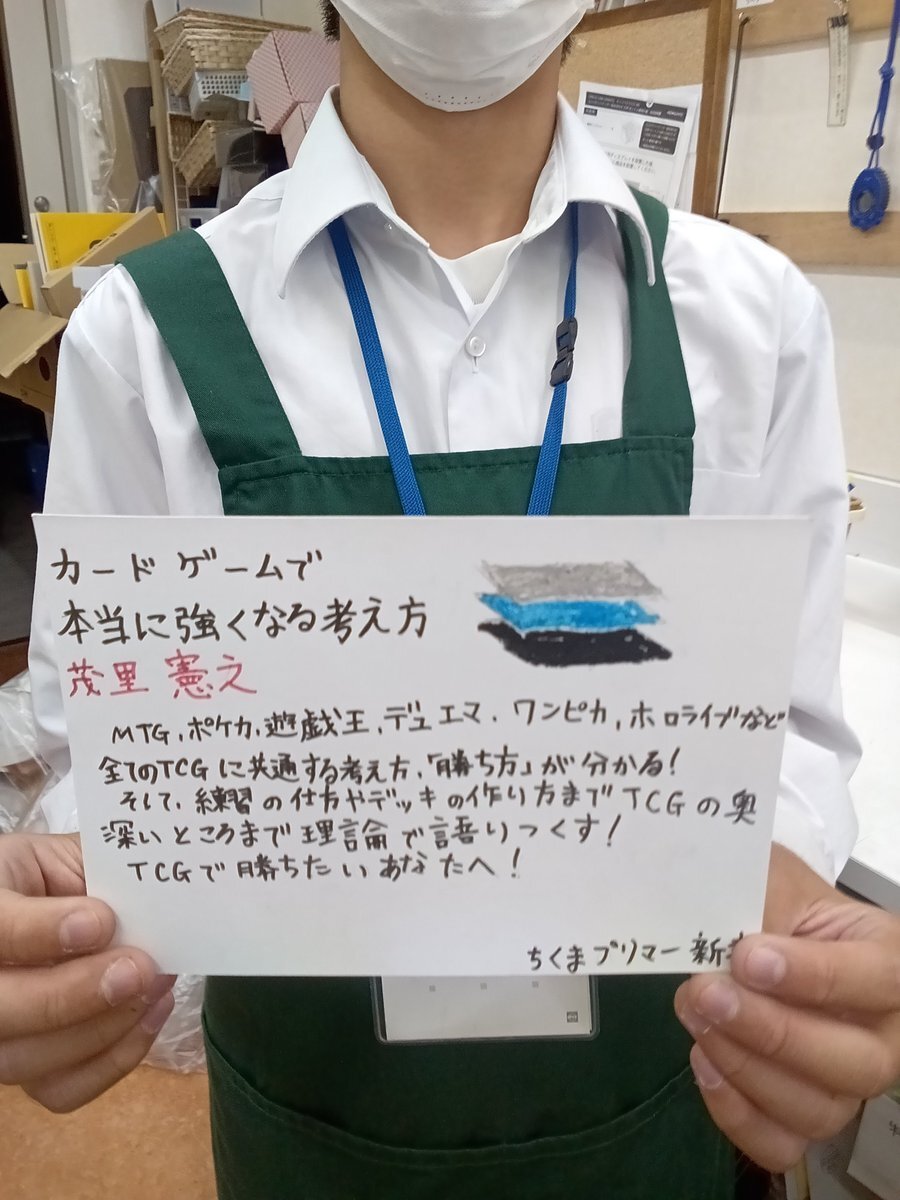 カードゲームで
本当に強くなる考え方
茂里 憲之
MTG、ポケカ、遊戯王、デュエマ、ワンピカ、ホロライブなど
全てのTCGに共通する考え方、「勝ち方」が分かる!
そして、練習の仕方やデッキの作り方までTCGの奥
深いところまで理論で語りつくす!
TCGで勝ちたいあなたへ!
ちくまプリマー新